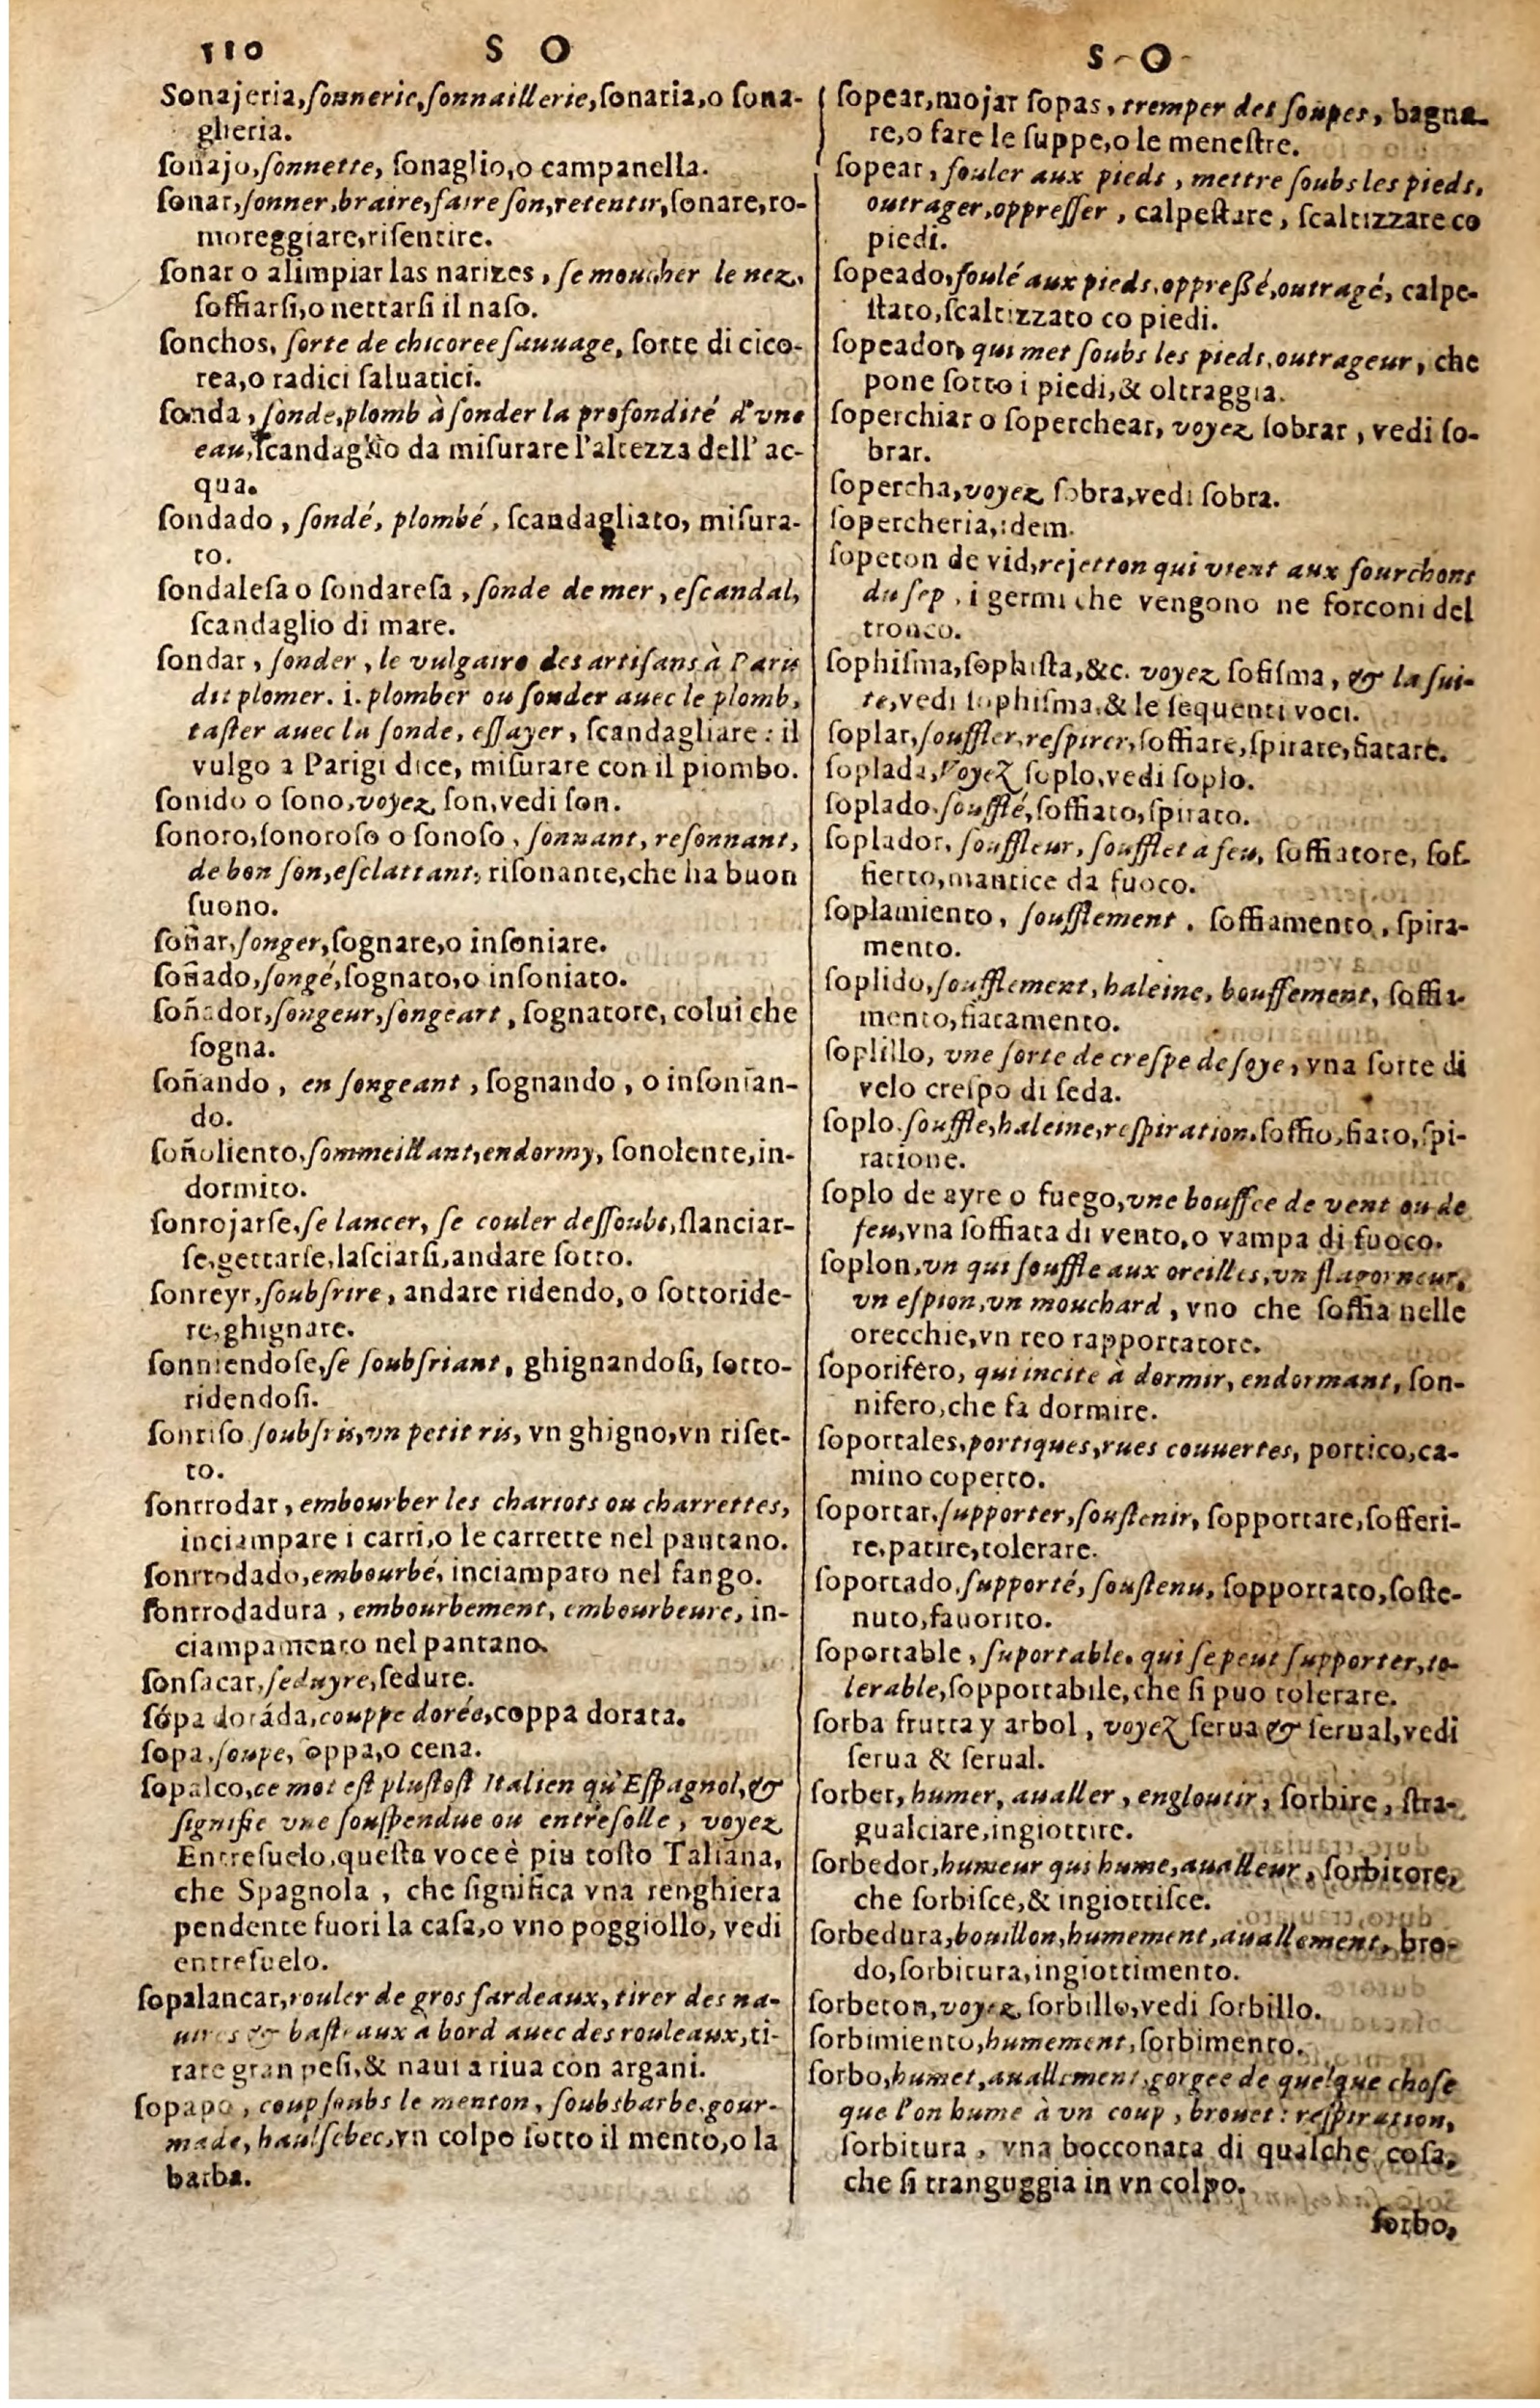 510 S O
Sonajeria, ſonnerie, ſonnaillerie, ſonaria, o ſona-
gheria.
ſonajo, ſonnette, ſonaglio, o campanella.
ſonar, ſonner, braire, faire ſon, retentir, ſonare, ro-
moreggiare, riſentire.
ſonar o alimpiar las narizes, ſe moucher le nez,
ſoffiarſi, o nettarſi il naſo.
ſonchos, ſorte de chicoree ſauuage, ſorte di cico-
rea, o radici ſaluatici.
ſonda, ſonde, plomb à ſonder la profondité d'vne
eau, ſcandaglio da miſurare l'altezza dell' ac-
qua.
ſondado, ſondé, plombé, ſcandagliato, miſura-
to.
ſondaleſa o ſondareſa, ſonde de mer, eſcandal,
ſcandaglio di mare.
ſondar, ſonder, le vulgaire des artiſans à Paris
dit plomer. i. plomber ou ſonder auec le plomb,
taſter auec la ſonde, eſſayer, ſcandagliare: il
vulgo a Parigi dice, miſurare con il piombo.
ſonido o ſono, voyez ſon, vedi ſon.
ſonoro, ſonoroſo o ſonoſo, ſonnant, reſonnant,
de bon ſon, eſclattant, riſonante, che ha buon
ſuono.
ſoñar, ſonger, ſognare, o inſoniare.
ſoñado, ſongé, ſognato, o inſoniato.
ſoñador, ſongeur, ſongeart, ſognatore, colui che
ſogna.
ſoñando, en ſongeant, ſognando, o inſonian-
do.
ſoñoliento, ſommeillant, endormy, ſonolente, in-
dormito.
ſonrojarſe, ſe lancer, ſe couler deſſoubs, ſlanciar-
ſe, gettarſe, laſciarſi, andare ſotto.
ſonreyr, ſoubſrire, andare ridendo, o ſottoride-
re, ghignare.
ſonriendoſe, ſe ſoubſriant, ghignandoſi, ſotto-
ridendoſi.
ſonriſo ſoubſris, vn petit ris, vn ghigno, vn riſet-
to.
ſonrrodar, embourber les chariots ou charrettes,
inciampare i carri, o le carrette nel pantano.
ſonrrodado, embourbé, inciampato nel fango.
ſonrrodadura, embourbement, embourbeure, in-
ciampamento nel pantano.
ſonſacar, ſeduyre, ſedure.
ſópa doráda, couppe dorée, coppa dorata.
ſopa, ſoupe, oppa, o cena.
ſopalco, ce mot eſt pluſtoſt Italien qu'Eſpagnol, &
ſignifie vne ſouſpendue ou entreſolle, voyez
Entreſuelo, queſta voce è piu toſto Taliana,
che Spagnola, che ſignifica vna renghiera
pendente fuori la caſa, o vno poggiollo, vedi
entreſuelo.
ſopalancar, rouler de gros fardeaux, tirer des na-
uires & baſteaux à bord auec des rouleaux, ti-
rare gran peſi, & naui a riua con argani.
ſopapo, coup ſoubs le menton, ſoubsbarbe, gour-
made, haulſebec, vn colpo ſotto il mento, o la
barba.
S O
ſopear, mojar ſopas, tremper des ſoupes, bagna-
re, o fare le ſuppe, o le meneſtre.
ſopear, fouler aux pieds, mettre ſoubs les pieds,
outrager, oppreſſer, calpeſtare, ſcalcizzare co
piedi.
ſopeado, foulé aux pieds, oppreßé, outragé, calpe-
ſtato, ſcalcizzato co piedi.
ſopeador, qui met ſoubs les pieds, outrageur, che
pone ſotto i piedi, & oltraggia.
ſoperchiar o ſoperchear, voyez ſobrar, vedi ſo-
brar.
ſopercha, voyez ſobra, vedi ſobra.
ſopercheria, idem.
ſopeton de vid, rejetton qui vient aux fourchons
du ſep, i germi che vengono ne forconi del
tronco.
ſophiſma, ſophiſta, &c. voyez ſofiſma, & la ſui-
te, vedi ſophiſma, & le ſequenti voci.
ſoplar, ſouffler, reſpirer, ſoffiare, ſpirare, fiatare.
ſoplada, Voyez ſoplo, vedi ſoplo.
ſoplado, ſoufflé, ſoffiato, ſpirato.
ſoplador, ſouffleur, ſoufflet à feu, ſoffiatore, ſof-
fietto, mantice da fuoco.
ſoplamiento, ſoufflement, ſoffiamento, ſpira-
mento.
ſoplido, ſoufflement, haleine, bouffement, ſoffia-
mento, fiatamento.
ſoplillo, vne ſorte de creſpe de ſoye, vna ſorte di
velo creſpo di ſeda.
ſoplo, ſouffle, haleine, reſpiration, ſoffio, fiato, ſpi-
ratione.
ſoplo de ayre o fuego, vne bouffee de vent ou de
feu, vna ſoffiata di vento, o vampa di fuoco.
ſoplon, vn qui ſouffle aux oreilles, vn flagorneur,
vn eſpion, vn mouchard, vno che ſoffia nelle
orecchie, vn reo rapportatore.
ſoporifero, qui incite à dormir, endormant, ſon-
nifero, che fa dormire.
ſoportales, portiques, rues couuertes, portico, ca-
mino coperto.
ſoportar, ſupporter, ſouſtenir, ſopportare, ſofferi-
re, patire, tolerare.
ſoportado, ſupporté, ſouſtenu, ſopportato, ſoſte-
nuto, fauorito.
ſoportable, ſuportable, qui ſe peut ſupporter, to-
lerable, ſopportabile, che ſi puo tolerare.
ſorba frutta y arbol, voyez ſerua & ſerual, vedi
ſerua & ſerual.
ſorber, humer, aualler, engloutir, ſorbire, ſtra-
gualciare, ingiottire.
ſorbedor, humeur qui hume, aualleur, ſorbitore,
che ſorbiſce, & ingiottiſce.
ſorbedura, bouillon, humement, auallement, bro-
do, ſorbitura, ingiottimento.
ſorbeton, voyez ſorbillo, vedi ſorbillo.
ſorbimiento, humement, ſorbimento.
ſorbo, humet, auallement, gorgee de quelque choſe
que l'on hume à vn coup, brouet: reſpiration,
ſorbitura, vna bocconata di qualche coſa,
che ſi tranguggia in vn colpo.
ſorbo,